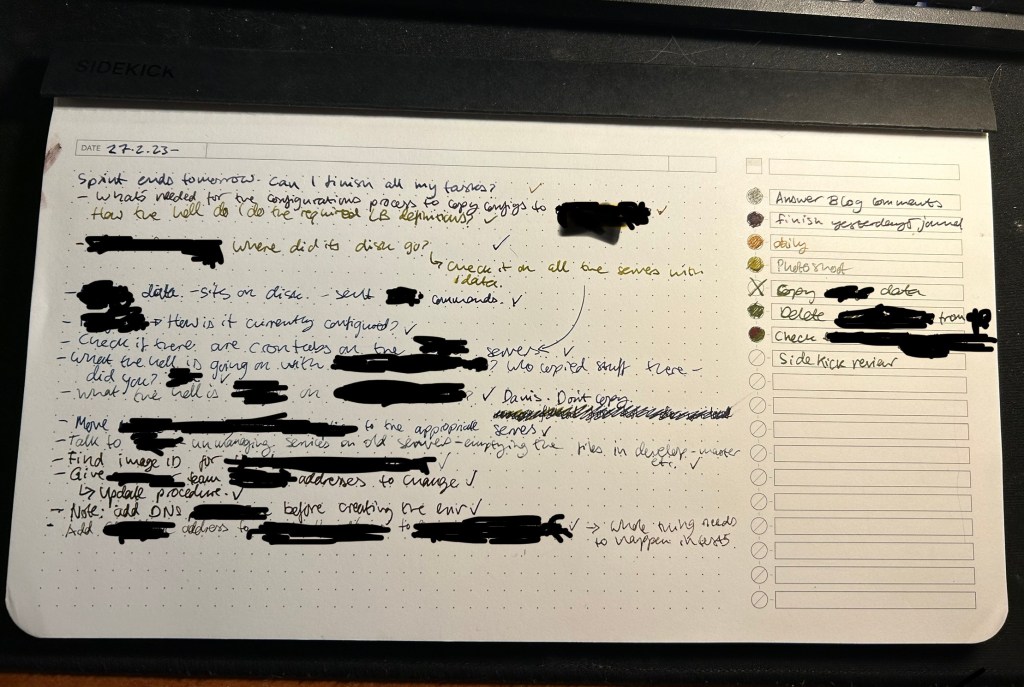 SIDEKICK
DATE 27.2.23-
Sprint ends tomorrow. Can I finish all my tasks? ✓
- What's needed for the configurations process to copy configs to ✓
How the hell do I do the required LB definitions? ✓
- where did its disk go? ✓
↳ Check it on all the serves with data.
- data - sits on disk. - sent commands. ✓
- → How is it currently configured? ✓
- Check if there are crontabs on the servers ✓
- What the hell is going on with ? Who copied stuff there -
did you? ✓
- What the hell is on ? ✓ Don't copy
- Move to the appropriate serves ✓
- Talk to unmanaging services on old servers - emptying the files in develop-master
etc. ✓
- Find image ID for ✓
- Give team addresses to change ✓
↳ Update procedure. ✓
- Note: add DNS before creating the env ✓
- Add address to to ✓ → whole thing needs
to happen in
Answer Blog comments
finish yesterday's journal
daily
Photoshoot
Copy data
Delete from
Check
Sidekick review